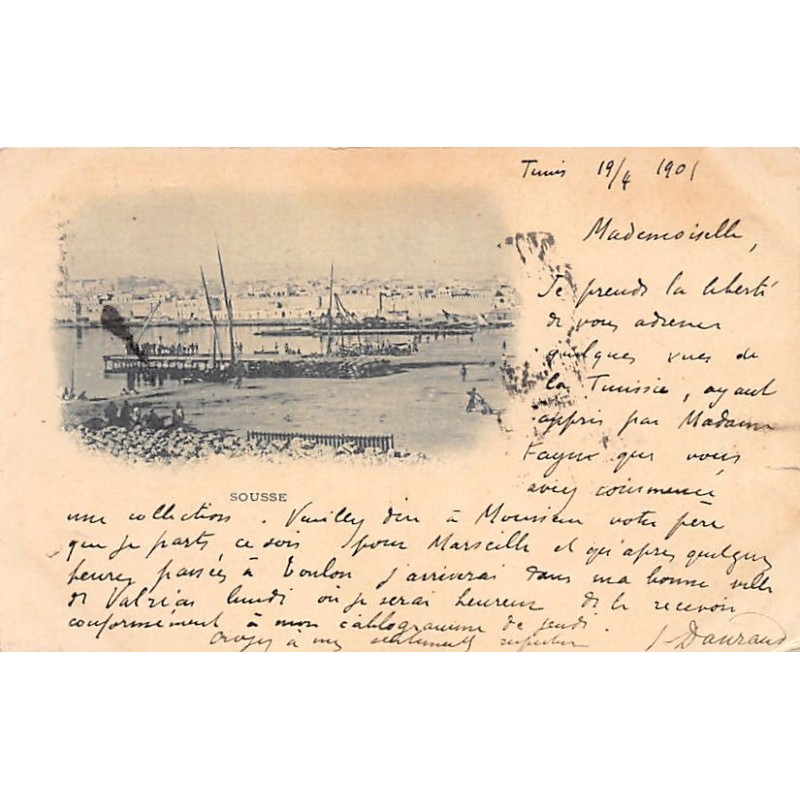 Tunis 19/4 1901
Mademoiselle,
Je prends la liberté
de vous adresser
quelques vues de
la Tunisie, ayant
appris par Madame
que vous
aviez commencé
SOUSSE
une collection. Veuillez dire à Monsieur votre père
que je parts ce soir pour Marseille et qu'après quelques
heures passées à Toulon j'arriverai dans ma bonne ville
de Valréas lundi où je serai heureux de le recevoir
conformément à mon cablogramme de jeudi.
Croyez à mes sentiments respectueux